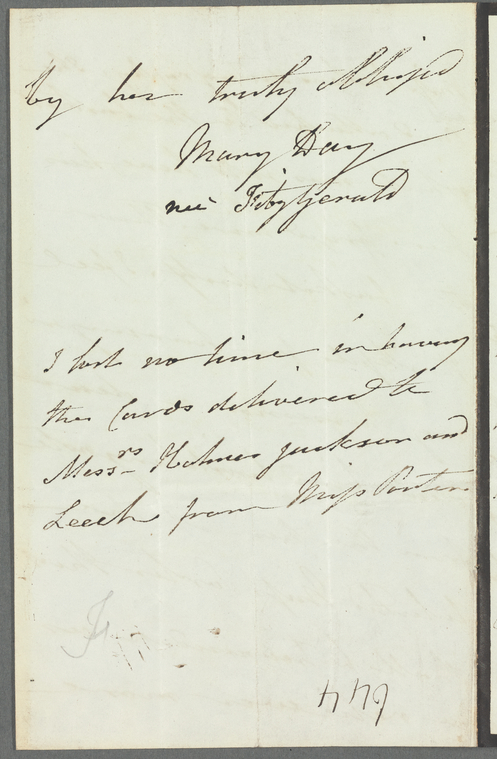 by her truly obliged
Mary Day
née Fitzgerald
I lost no time in having
the Cards delivered to
Mess.rs Holmes Jackson and
Leech from Miss Porter
644